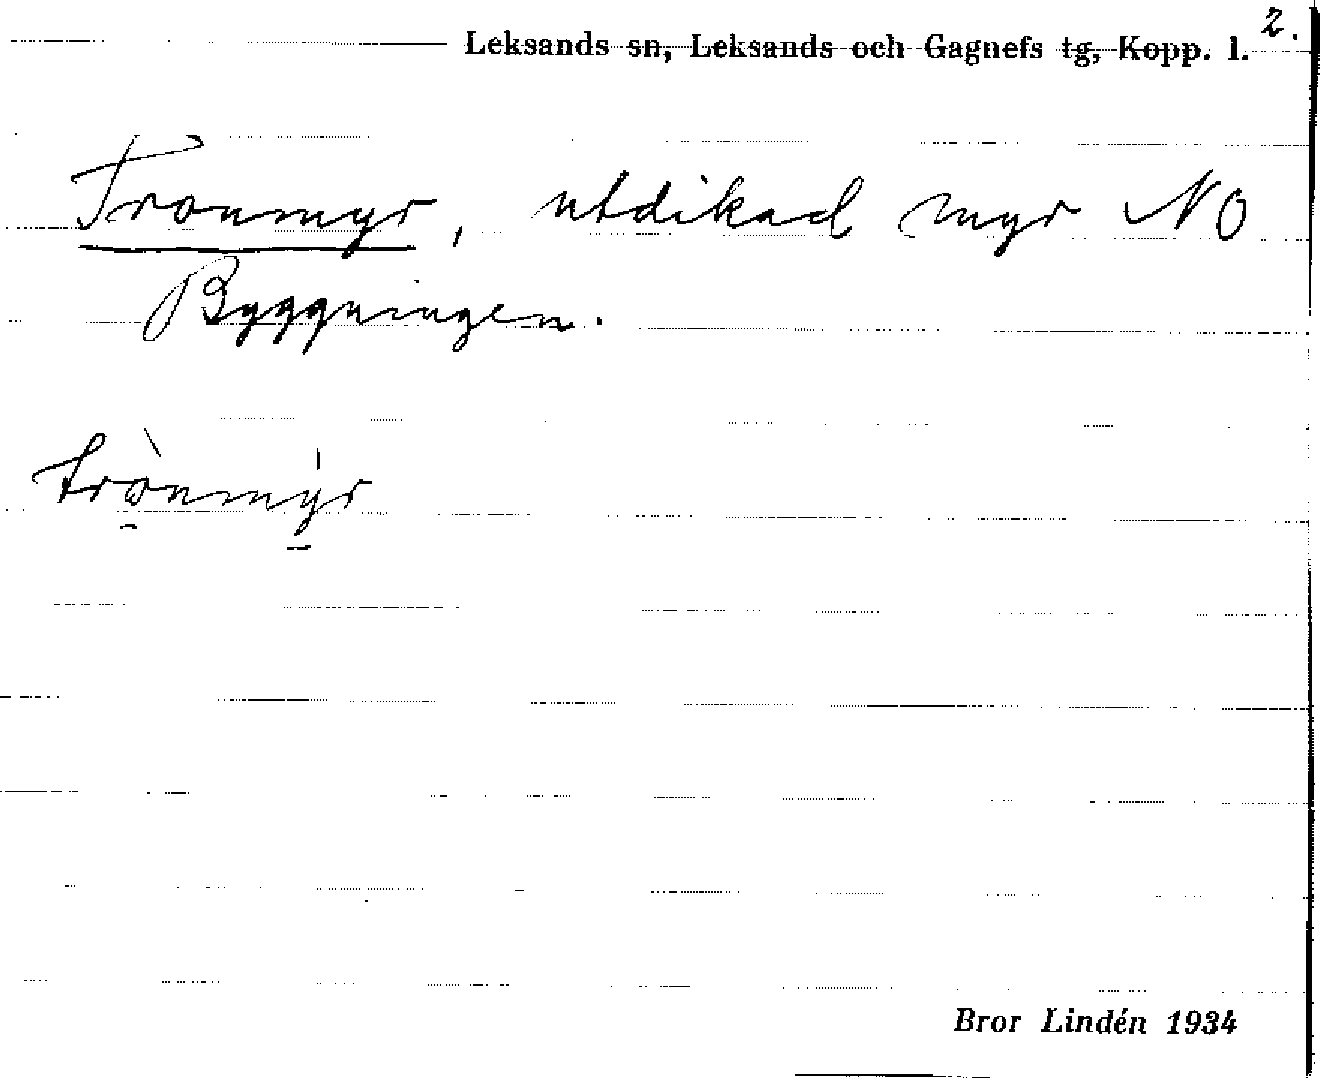 2.
Leksands sn, Leksands och Gagnefs tg, Kopp. l.
Tronmyr, utdikad myr NO
Byggningen.
trònmy̍r
Bror Lindén 1934